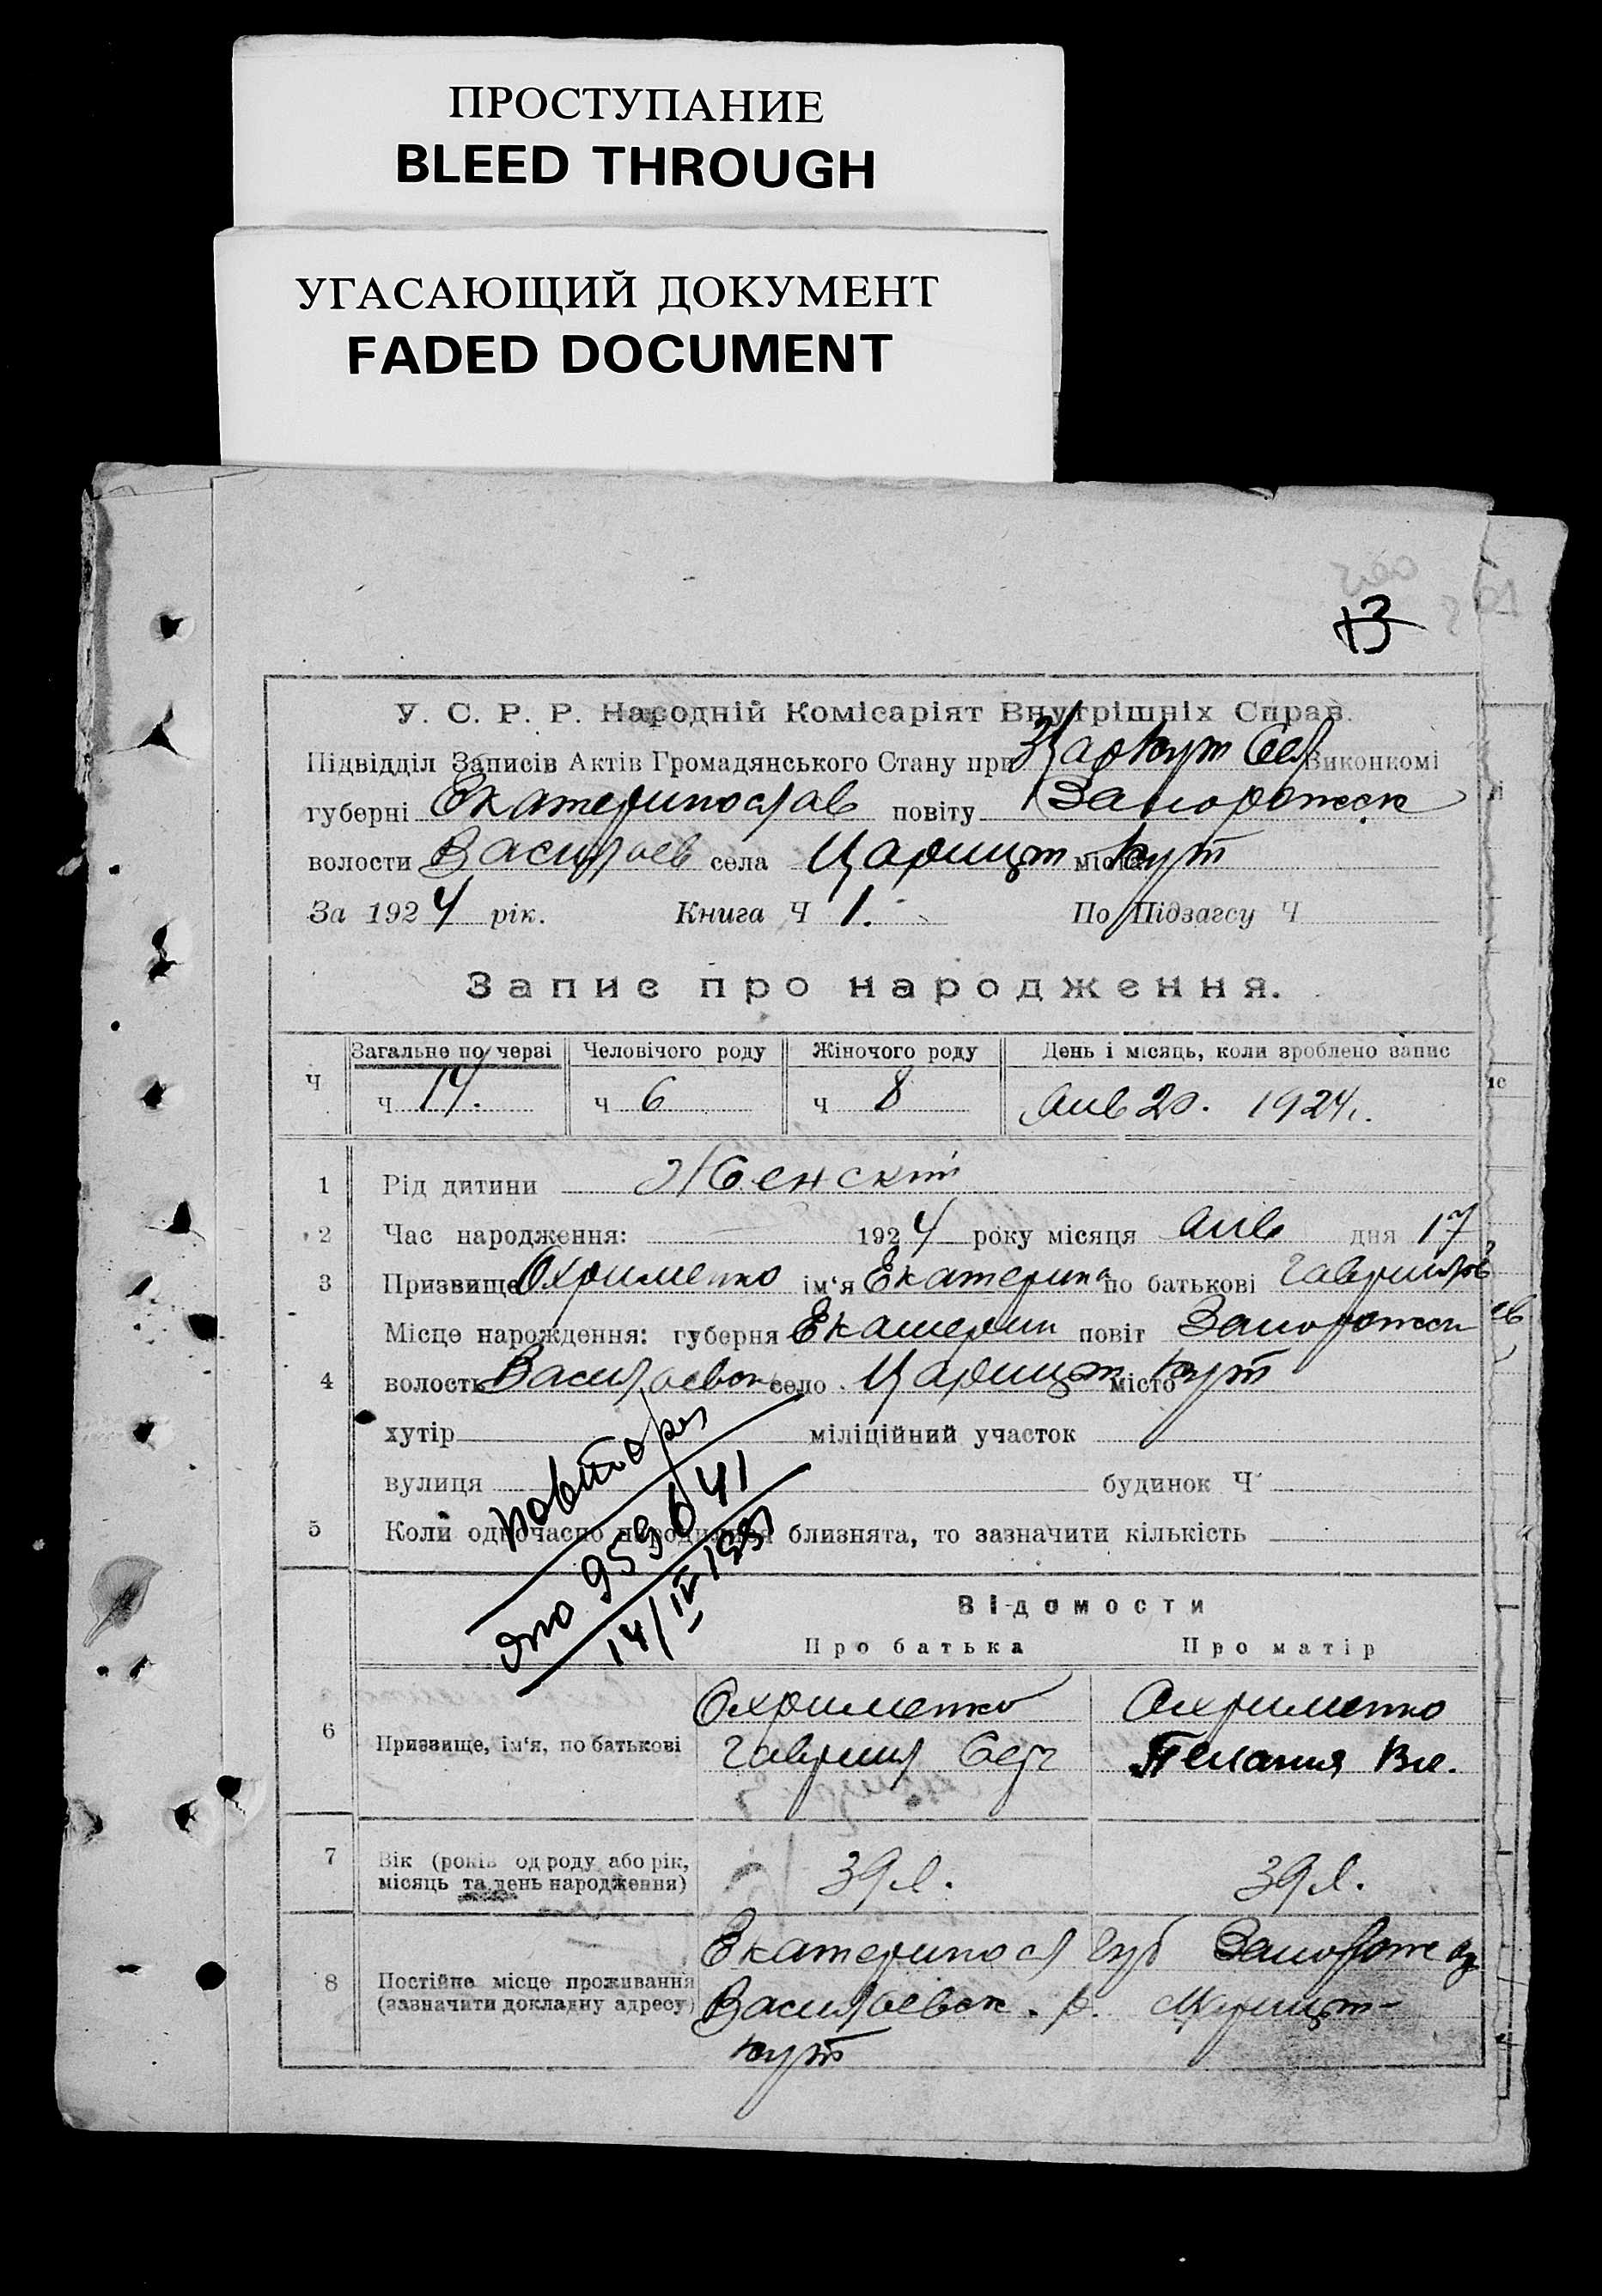 ПРОСТУПАНИЕ
BLEED THROUGH
УГАСАЮЩИЙ ДОКУМЕНТ
FADED DOCUMENT
13
У. С. Р. Р. Народній Комісаріят Внутрішніх Справ.
Підвідділ Записів Актів Громадянського Стану при Виконкомі
губерні Екатеринослав повіту Запорожск
волости Васильев села Царицын місто Кут
За 1924 рік. Книга Ч 1. По Підзагсу Ч
Запис про народження.
Загальне по черзі Человічого роду Жіночого роду День і місяць, коли зроблено запис
Ч ч 14. ч 6 ч 8 Янв 20. 1924.
1 Рід дитини Женский
2 Час народження: 1924 року місяця Янв дня 17
3 Призвище Охрименко ім'я Екатерина по батькові Гаврилов
Місце народження: губерня Екатерин повіт Запорожск
4 волость Васильевск село Царицын місто Кут
хутір міліційний участок
вулиця будинок Ч
5 Коли одночасно народилися близнята, то зазначити кількість
повторн
яно 959641
14/IV
Відомости
Про батька Про матір
6 Призвище, ім'я, по батькові
Охрименко Охрименко
Гаврил Пелагия
7 Вік (років од роду або рік,
місяць та день народження)
39 л. 39 л.
8 Постійне місце проживання
(зазначити докладну адресу)
Екатериносл губ Запорож
Васильевск. р. Царицын-
Кут